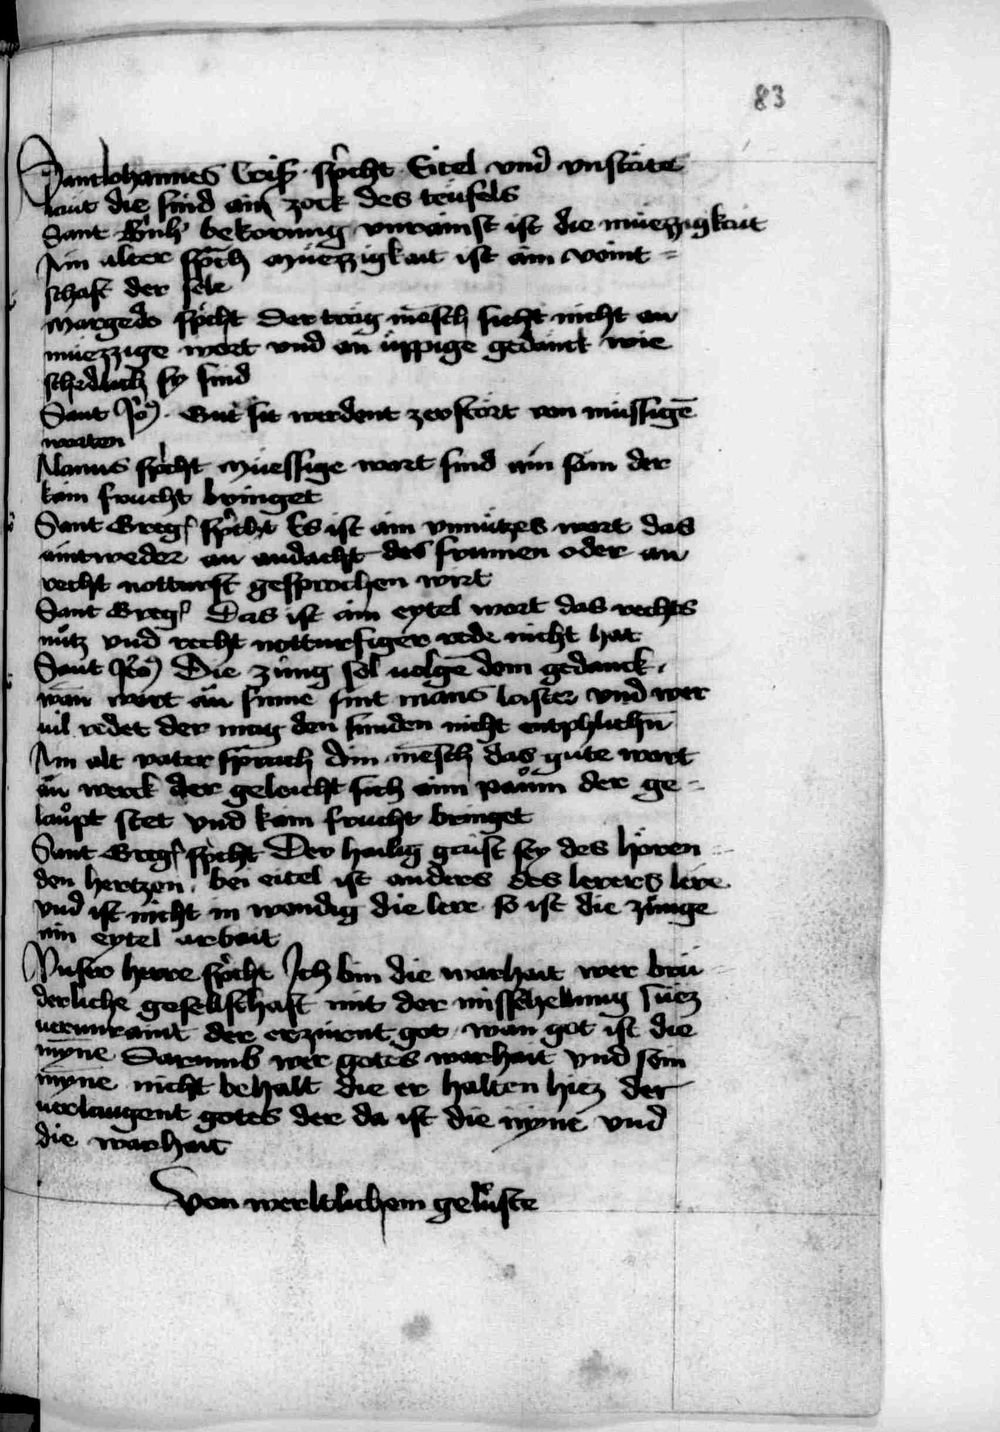 83
Sant Johannes Cris. spricht Eitel vnd vnstäte
läut die sind ain zock des teufels
Sant bekorung vnrainst ist die müezzigkait
Ain alter sprach Müezzigkait ist ain veint=
schaft der sele
spricht Der träg mensch sicht nicht an
müezzige wort vnd an üppige gedänck wie
schedlich sy sind
Sant Jero. Gut sit werdent zerstört von müssigē
worten
Alanus spricht Müessige wort sind ain sam der
kain frucht bringet
Sant Greg spricht Es ist ain vnnützes wort das
aintweder an andacht des frumen oder an
recht notturft gesprochen wirt
Sant Greg Das ist ain eytel wort das rechts
nutz vnd recht notturftiger rede nicht hat
Sant Jero Die zung sol uolgē dem gedanck
wan wort an sinne sint mans laster vnd wer
uil redet der mag den sunden nicht entphliehn
Ain alt vater sprach Ain mēsch das gute wort
an werck der geleicht sich aim paum der ge=
laupt stet vnd kain frucht bringet
Sant Greg spricht Der hailig gaist sey des hören=
den hertzen bei eitel ist anders des lerers lere
vnd ist nicht in wendig die lere so ist die zunge
ain eytel arbait
Vnser herre spricht Ich bin die warhait wer brü
derliche gesellschaft mit der misshellung
uerunraint der erzürent got wan got ist die
myne Darumb wer gotes warhait vnd sein
myne nicht behalt die er halten hiez der
uerlaugent gotes der da ist die myne vnd
die warhait
Von werltlichem geluste